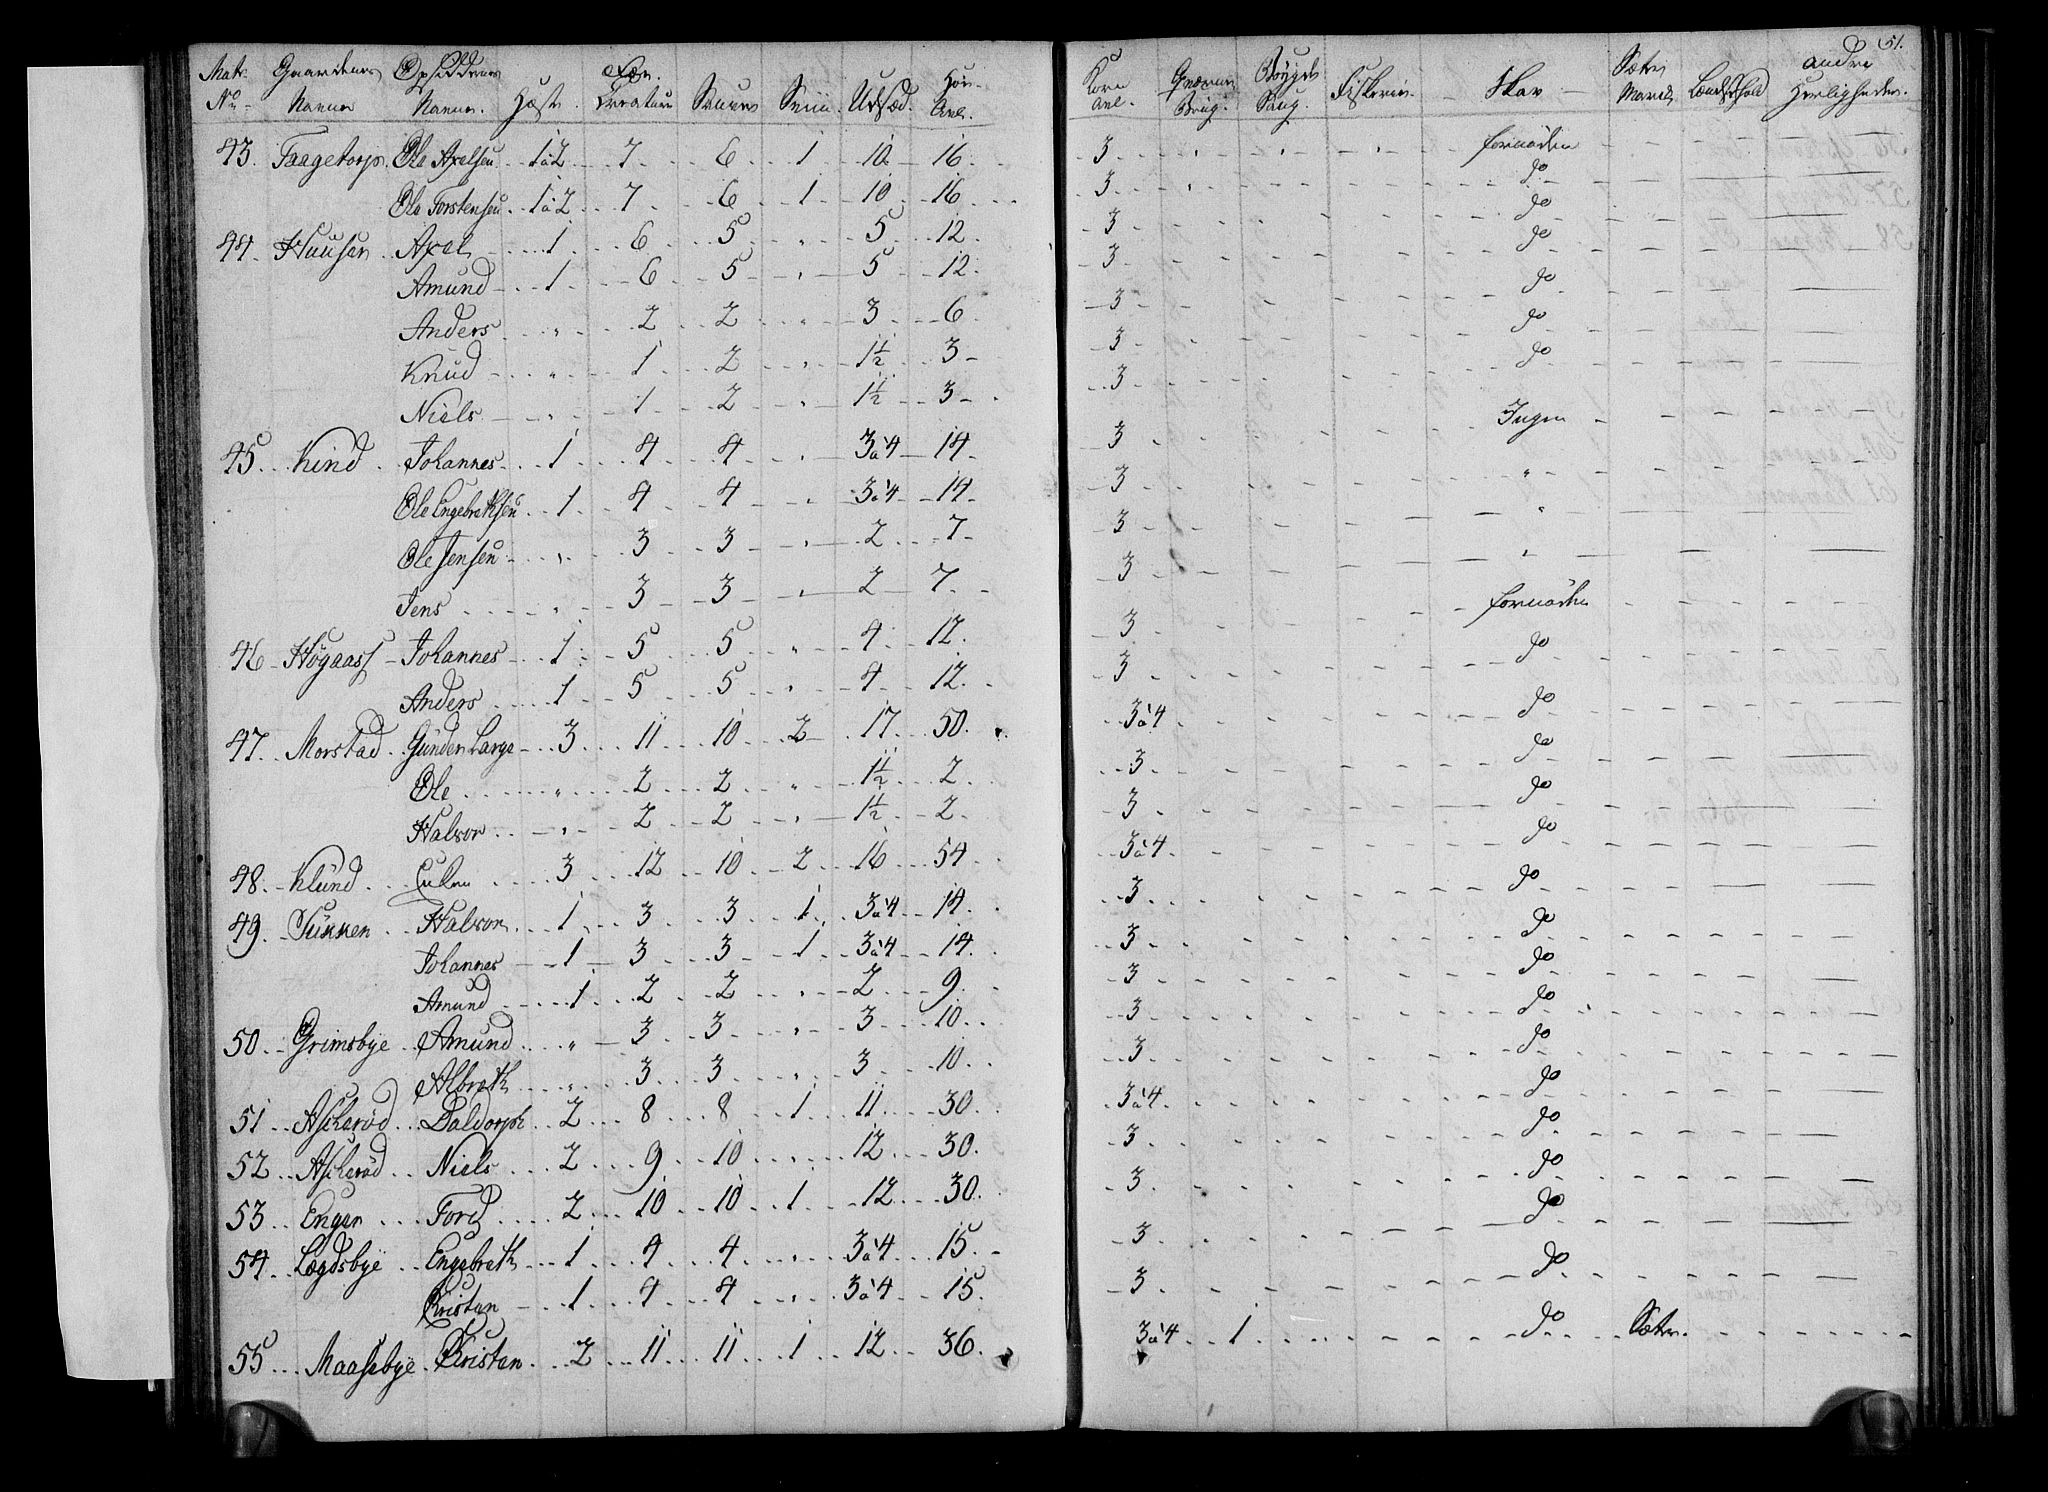 51.
Matr. No Gaardenes Navne Opsiddernes Navne. Heste Fæe. Creature Sauer Sviin Udsæd. Høe-Avl. Korn Avl. Qværne Brug. Bøygde Saug. Fiskerier Skov Sæter Andre Herligheder.
43. Faagetorp. Ole Axelsen 1 à 2 7 6 1 10 16 3 fornøden
Ole Torstensen 1 à 2 7 6 1 10 16 3 do
44. Huusen Axel 1 6 5 " 5 12 3 do
Amund 1 6 5 " 5 12 3 do
Anders " 2 2 " 3 6 3 do
Knud " 1 2 " 1½ 3 3 do
Niels " 1 2 " 1½ 3 3 do
45. Kind Johannes 1 4 4 " 3 à 4 14 3 Ingen
Ole Engebrethsen 1 4 4 " 3 à 4 14 3 "
Ole Jensen " 3 3 " 2 7 3 "
Jens " 3 3 " 2 7 3 "
46 Høgaass Johannes 1 5 5 " 4 12 3 fornøden
Anders 1 5 5 " 4 12 3 do
47. Morstad Gunder Large 3 11 10 2 17 50 3 à 4 do
Ole " 2 2 " 1½ 2 3 do
Halvor " 2 2 " 1½ 2 3 do
48. Klund 3 12 10 2 16 54 3 à 4 do
49. Halvor 1 3 3 1 3 à 4 14 3 do
Johannes 1 3 3 1 3 à 4 14 3 do
Amund 1 2 2 " 2 9 3 do
50. Grimsbye Amund " 3 3 " 3 10 3 do
Albreth " 3 3 " 3 10 3 do
51 Askerød Baldorph 2 8 8 1 11 30 3 à 4 do
52 Askerød Niels 2 9 10 " 12 30 3 do
53 Engen Tord 2 10 10 1 12 30 3 do
54 Lægdsbye Engebreth 1 4 4 " 3 à 4 15 3 do
Christen 1 4 4 " 3 à 4 15 3 do
55 Maasebye Christen 2 11 11 1 12 36 3 à 4 1 do Sæter